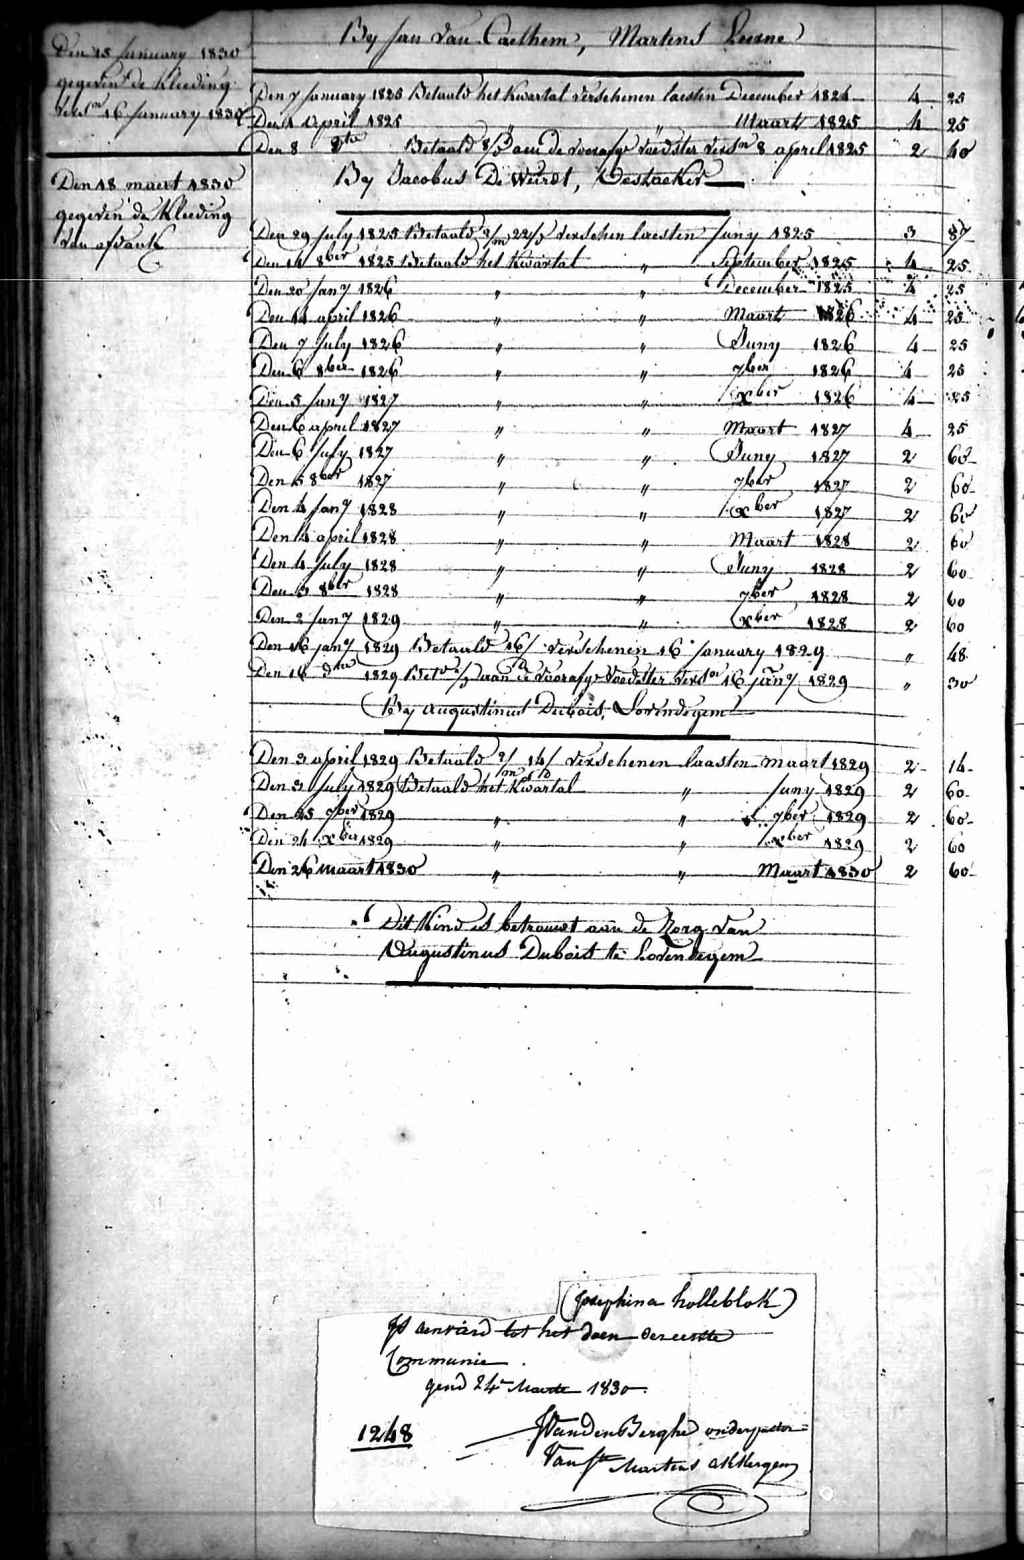 Den 15 January 1830
gegeven de Kleeding
vers.en 16 January 1830
Den 18 maert 1830
gegeven de Kleeding
van
By Jan Van Caelhem, Martens Leerne
Den 7 January 1825 Betaald het Kwartal verschenen laesten December 1824 4 25
Den 4 April 1825 " " Maart 1825 4 25
Den 8 d.to Betaald aen de voorasge voedster vers.en 8 april 1825 2 40
By Jacobus De Weirdt, Oostacker
Den 29 July 1825 Betaald 2/m 22/d verschen laesten Juny 1825 3 87
Den 14 8ber 1825 Betaald het Kwartal " September 1825 4 25
Den 20 Jan.y 1826 " " December 1825 4 25
Den 14 april 1826 " " Maart 1826 4 25
Den 7 July 1826 " " Juny 1826 4 25
Den 6 8ber 1826 " " 7ber 1826 4 25
Den 5 Jan.y 1827 " " xber 1826 4 25
Den 6 april 1827 " " Maart 1827 4 25
Den 6 July 1827 " " Juny 1827 2 60
Den 5 8ber 1827 " " 7ber 1827 2 60
Den 4 Jan.y 1828 " " xber 1827 2 60
Den 4 april 1828 " " Maart 1828 2 60
Den 4 July 1828 " " Juny 1828 2 60
Den 3 8ber 1828 " " 7ber 1828 2 60
Den 2 Jan.y 1829 " " xber 1828 2 60
Den 16 jan.y 1829 Betaald 16/d verschenen 16 January 1829 " 48
Den 16 d.to 1829 aan de voorasge Voedster vers.en 16 jan.y 1829 " 30
By Augustinus Dubois, Lovendegem
Den 3 april 1829 Betaald 2/m 14/d verschenen laasten maart 1829 2 14
Den 3 July 1829 Betaald het Kwartal " Juny 1829 2 60
Den 25 7ber 1829 " " 7ber 1829 2 60
Den 24 xber 1829 " " xber 1829 2 60
Den 26 maart 1830 " " Maart 1830 2 60
Dit Kind is betrouwt aan de Zorg van
Augustinus Dubois te Lovendegem
(Josephina holleblok)
Is aenverd tot het doen der eerste
Communie
gend 24 Maerte 1830
1248
JVandenBerghe onderpastor
Van S.te Martens akkergem